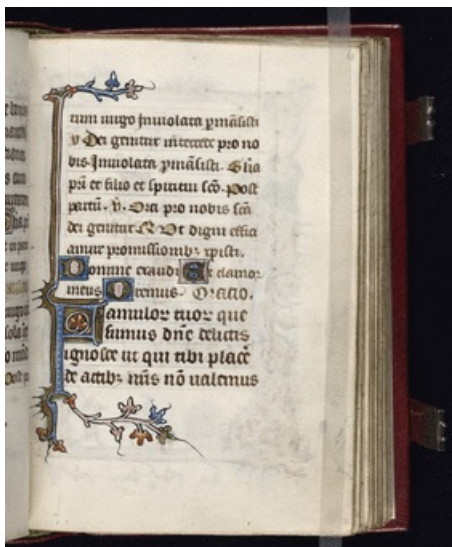 tum uirgo Inuiolata pmāsisti
v Dei genitrix intercede pro no
bis Inuiolata pmāsisti. Glia
pri et filio et spiritui scō. Post
partū. v. Ora pro nobis scā
dei genitrix R Vt digni effici
amur promissionibꝫ xpisti.
Domine exaudi Et clamor
meus Oremus Oracio.
Famulor tuor que
sumus dn̄e delictis
ignosce ut qui tibi placē
de actibꝫ nr̄is nō ualemus